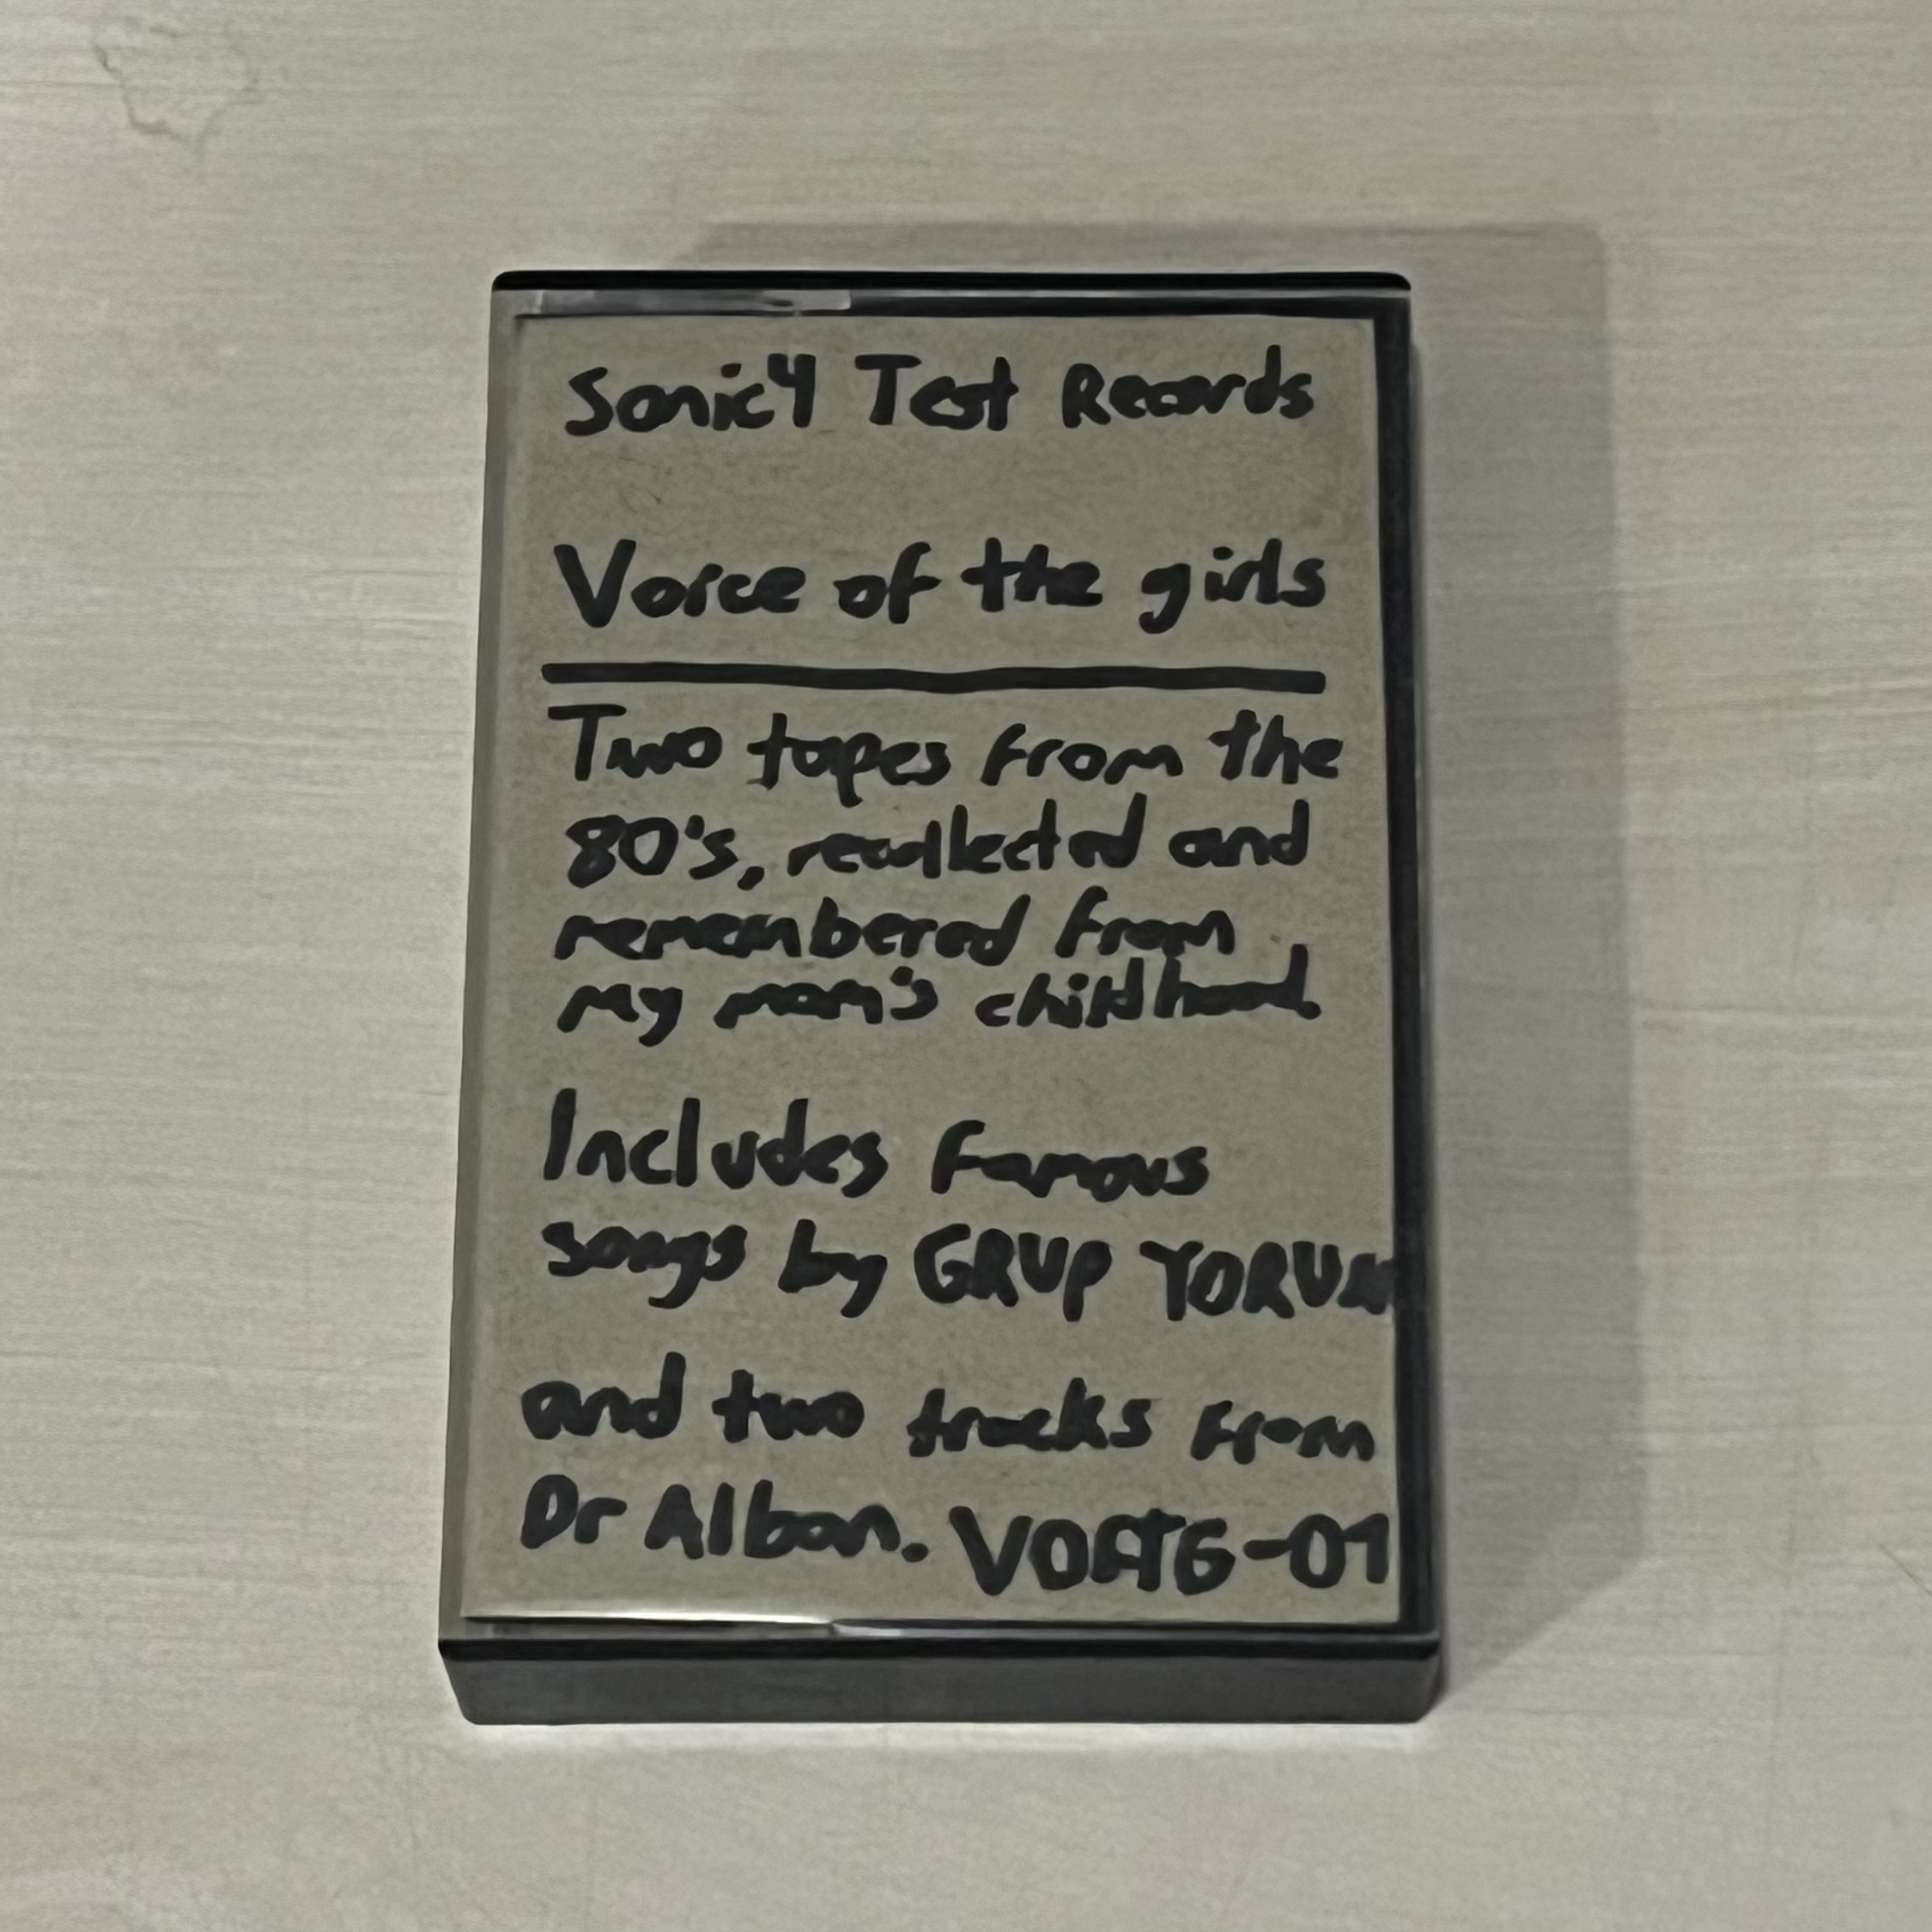 Sonic4 Test Records
Voice of the girls
Two tapes from the
80's, recollected and
remembered from
my mom's childhood
Includes famous
songs by GRUP YORUM
and two tracks from
Dr Alban. VOATG-01